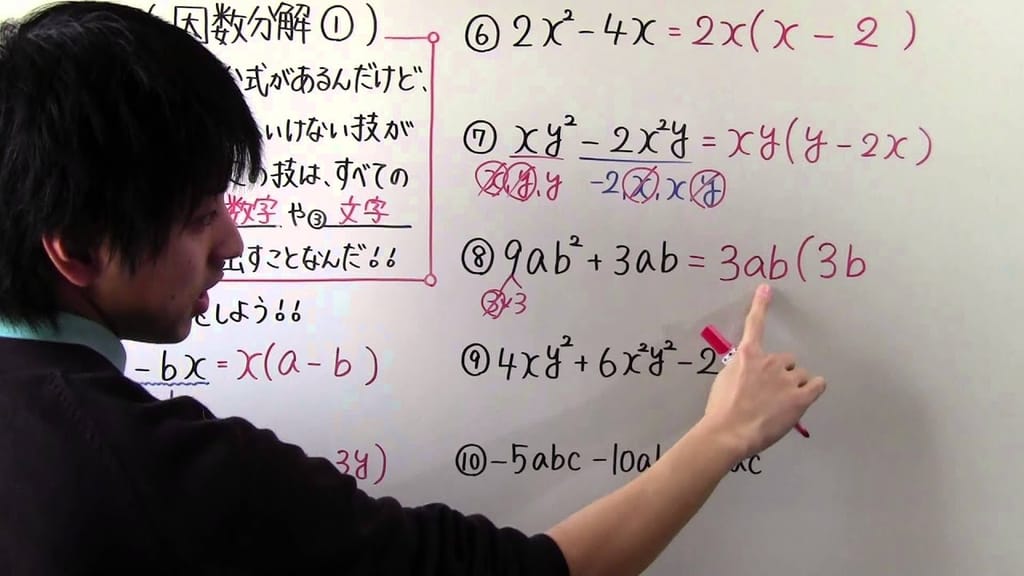 (因数分解①)
公式があるんだけど、
いけない技が
の技は、すべての
数字 や③ 文字
出すことなんだ!!
をしよう!!
-bx = x(a-b)
3y)
⑥ 2x² - 4x = 2x(x - 2)
⑦ xy² - 2x²y = xy(y - 2x)
x.y.y -2.x.x.y
⑧ 9ab² + 3ab = 3ab(3b
3×3
⑨ 4xy² + 6x²y² - 2
⑩ -5abc - 10a